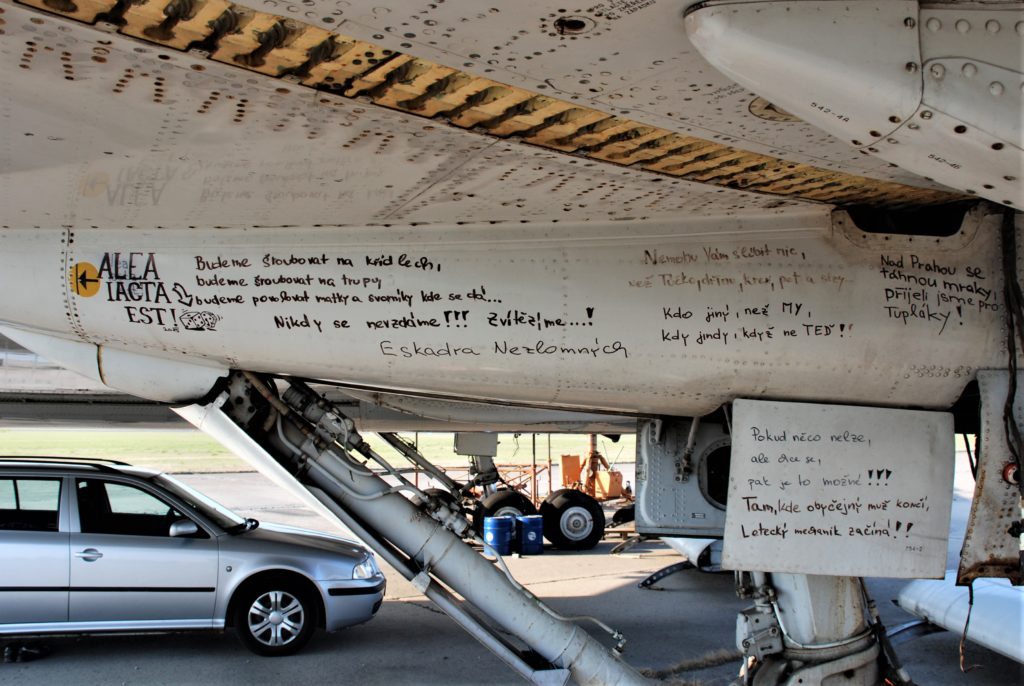 542-4A
542-4B
ALEA
IACTA
EST!
Budeme šroubovat na křídlech,
budeme šroubovat na trupu,
budeme povolovat matky a svorníky kde se dá...
Nikdy se nevzdáme!!! Zvítězíme...!
Eskadra Nezlomných
Nemohu Vám slíbit nic,
než krev, pot a slzy
Kdo jiný, než MY,
kdy jindy, když ne TEĎ!!
Nad Prahou se
táhnou mraky,
přijeli jsme pro
Tupláky!
Pokud něco nelze,
ale chce se,
pak je to možné!!!
Tam, kde obyčejný muž končí,
Letecký mechanik začíná!!